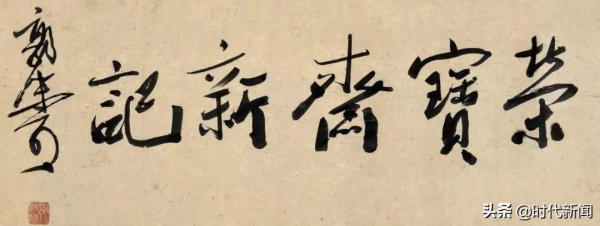 榮寶齋新記
郭沫若
头条 @时代新闻